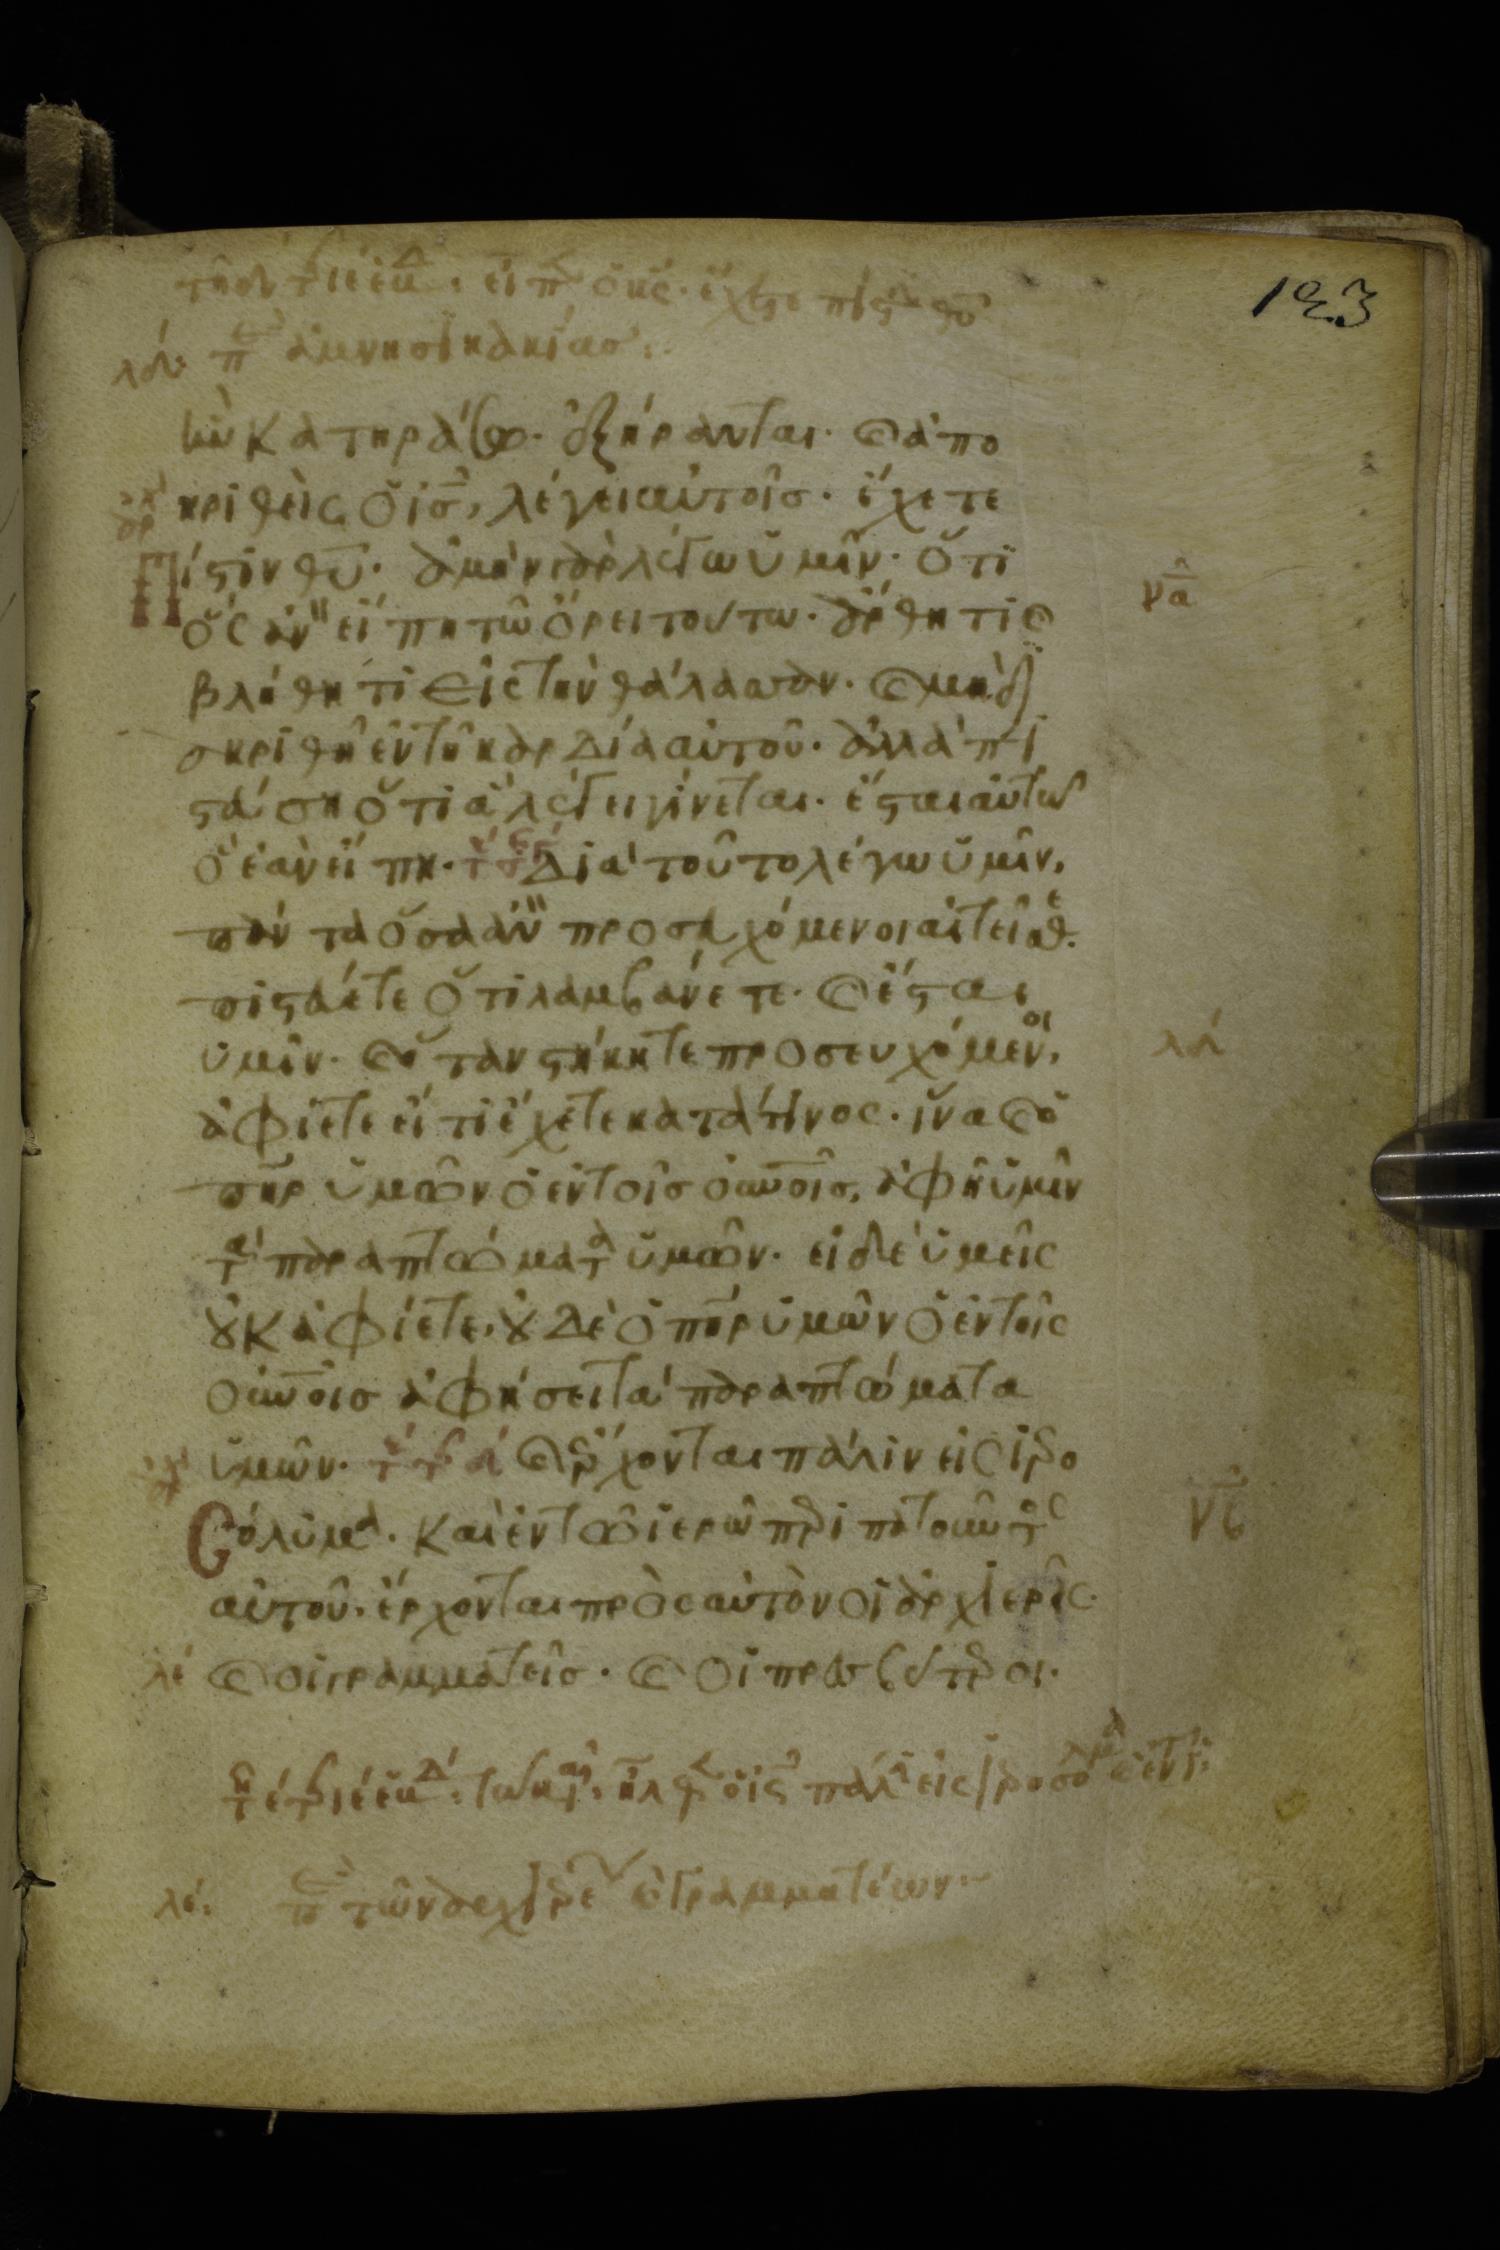 123
π̅ ἀμνησικακίας:
ἣν κατηράσω· ἐξήρανται· καὶ ἀπο
κριθεὶς ὁ ι̅ς̅, λέγει αὐτοῖς· ἔχετε
πίστιν θ̅υ̅· ἀμὴν γὰρ λέγω ὑμῖν· ὅτι
ὃς ἂν εἴπη τῶ ὄρει τούτω· ἄρθητι καὶ
βλήθητι εἰς τὴν θάλασσαν· καὶ μὴ δι
ακριθῆ ἐν τῆ καρδία αὐτοῦ· ἀλλὰ πι
στεύση ὅτι ἃ λέγει γίνεται· ἔσται αὐτῶ
ὃ ἐὰν εἴπη· διὰ τοῦτο λέγω ὑμῖν,
πάντα ὅσα ἂν προσευχόμενοι αἰτεῖσθε·
πιστεύετε ὅτι λαμβάνετε· καὶ ἔσται
ὑμῖν· καὶ ὅταν στήκητε προσευχόμενοι,
ἀφίετε εἴ τι ἔχετε κατά τινος· ἵνα καὶ ὁ
π̅η̅ρ̅ ὑμῶν ὁ ἐν τοῖς ο̅υ̅ν̅οῖς, ἀφῆ ὑμῖν
τὰ παραπτώματα ὑμῶν· εἰ δὲ ὑμεῖς
οὐκ ἀφίετε, οὐδὲ ὁ π̅η̅ρ̅ ὑμῶν ὁ ἐν τοῖς
ο̅υ̅ν̅οις ἀφήσει τὰ παραπτώματα
ὑμῶν· καὶ ἔρχονται πάλιν εἰς ἱερο
σόλυμα· καὶ ἐν τῶ ἱερῶ περιπατοῦντος
αὐτοῦ, ἔρχονται πρὸς αὐτὸν οἱ ἀρχιερεῖς·
καὶ οἱ γραμματεῖς· καὶ οἱ πρεσβύτεροι·
λε
λε· π̅ τῶν ἀρχιερε καὶ γραμματέων